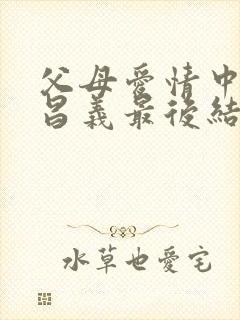 父母愛情中
昌義最後結
水草也愛宅